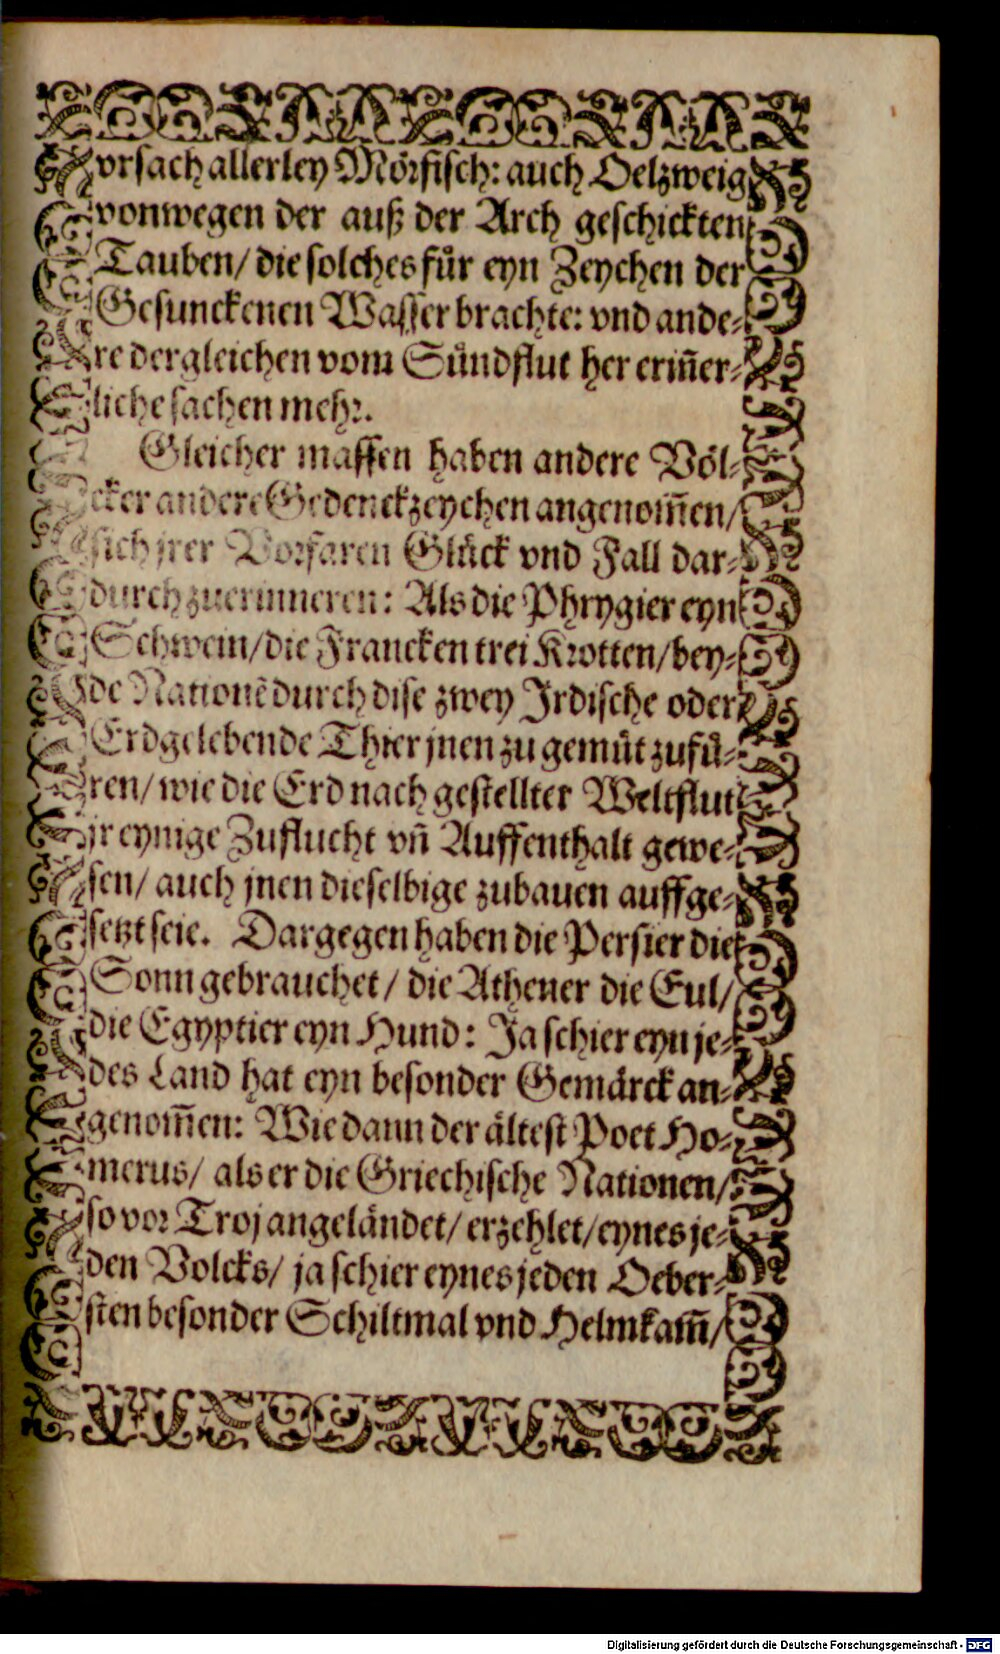 vrsach allerley Mörfisch: auch Oelzweig
vonwegen der auß der Arch geschickten
Tauben/ die solches fuͤr eyn Zeychen der
Gesunckenen Wasser brachte: vnd ande⸗
re dergleichen vom Suͤndflut her erin̄er⸗
liche sachen mehr.
Gleicher massen haben andere Völ⸗
cker andere Gedenckzeychen angenom̄en/
sich jrer Vorfaren Gluͤck vnd Fall dar⸗
durch zuerinneren: Als die Phrygier eyn
Schwein/ die Francken trei Krotten/ bey⸗
de Nationē durch dise zwey Jrdische oder
Erdgelebende Thier jnen zu gemuͤt zufuͤ⸗
ren/ wie die Erd nach gestellter Weltflut
jr eynige Zuflucht vn̄ Auffenthalt gewe⸗
sen/ auch jnen dieselbige zubauen auffge⸗
setzt seie. Dargegen haben die Persier die
Sonn gebrauchet/ die Athener die Eul/
die Egyptier eyn Hund: Ja schier eyn je⸗
des Land hat eyn besonder Gemärck an⸗
genom̄en: Wie dann der ältest Poet Ho⸗
merus/ als er die Griechische Nationen/
so vor Troj angeländet/ erzehlet/ eynes je⸗
den Volcks/ ja schier eynes jeden Oeber⸗
sten besonder Schiltmal vnd Helmkam̄/
Digitalisierung gefördert durch die Deutsche Forschungsgemeinschaft - DFG